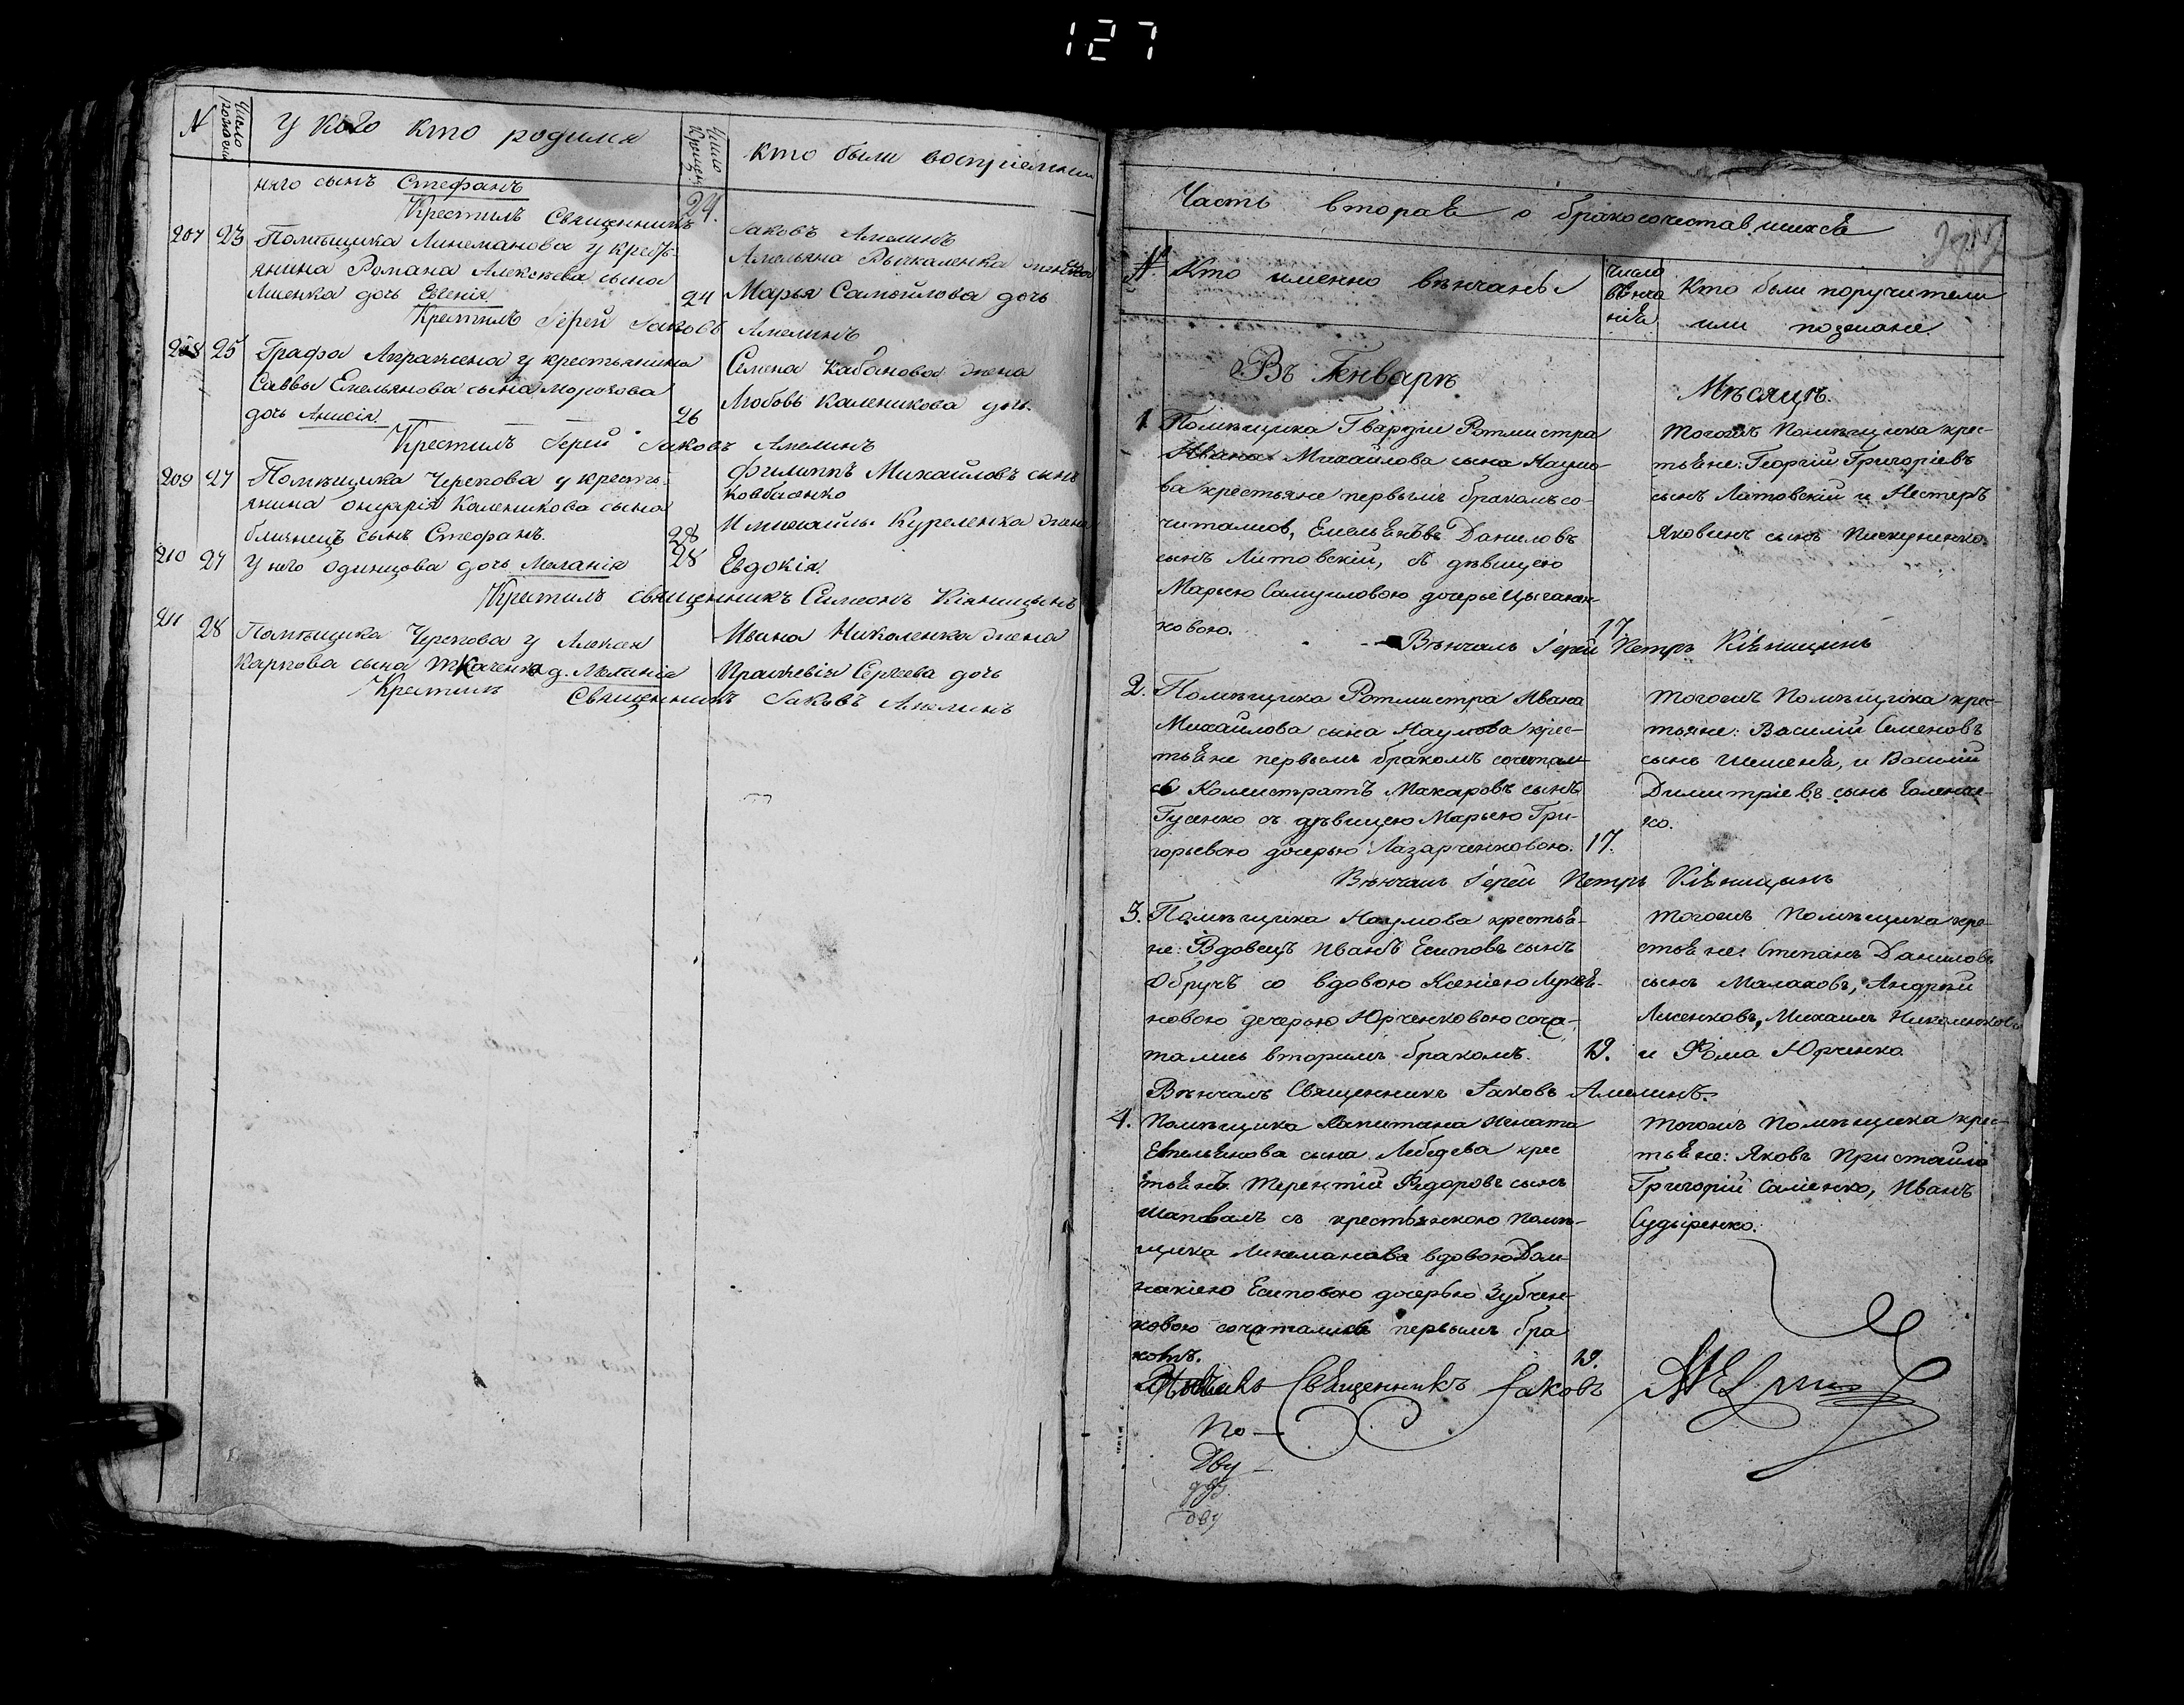 127
№
Число рожден
У кого кто родился
Число Крещен.
кто были восприемники
него сынъ Стефанъ
24.
Крестилъ Священникъ Іаковъ Амелинъ
207 23 Помѣщика Линеманова у кресть-
янина Романа Алексѣева сына
дочь Евгенія
24
Емельяна жена
Марья Самойлова дочь
Крестилъ Іерей Іаковъ Амелинъ
208 25 Графа Апраксина у крестьянина
Саввы Емельянова сына Морозова
дочь Анисія
26
Семена Кабанова жена
Любовь Каленикова дочь.
Крестилъ Іерей Іаковъ Амелинъ
209 27 Помѣщика Черепова у кресть-
янина Каленикова сына
близнецъ сынъ Стефанъ.
28
Филиппъ Михайловъ сынъ
Ковбасенко
210 27 У него Одинцова дочь Меланія
28
Куреленка жена
Евдокія.
Крестилъ священникъ Симеонъ Кіяницынъ
211 28 Помѣщика Черепова у Алексея
Карпова сына Ткаченка д. Меланія
Ивана Николенка жена
Параскевія Сергеева дочь
Крестилъ Священникъ Іаковъ Амелинъ
Часть вторая о бракосочетавшихся
№
Кто именно вѣнчаны
Число вѣнчанія
Кто были поручители
или поезжане.
Въ Генварѣ
Мѣсяцѣ.
1 Помѣщика Гвардіи Ротмистра
Ивана Михайлова сына Наумо-
ва крестьяне первымъ бракомъ со-
читались, Емельянъ Даниловъ
сынъ Литовскій, съ дѣвицею
Марьею Самуиловою дочерью Цыганен-
ковою.
17.
тогожъ Помѣщика крес-
тьяне: Георгій Григоріевъ
сынъ Литовскій и Нестеръ
Яковлевъ сынъ Пискуненко.
Вѣнчалъ Іерей Петръ Кіяницынъ
2. Помѣщика Ротмистра Ивана
Михайлова сына Наумова крес-
тьяне первымъ бракомъ сочетали-
сь Калистратъ Макаровъ сынъ
Гусенко съ дѣвицею Марьею Гри-
горьевою дочерью Лазарченковою. 17.
тогожъ Помѣщика крес-
тьяне: Василій Семеновъ
сынъ Шешеня, и Василій
Димитріевъ сынъ
ко.
Вѣнчалъ Іерей Петръ Кіяницынъ
3. Помѣщика Наумова крестья-
не: Вдовецъ Иванъ Есиповъ сынъ
Обручъ со вдовою Ксеніею Лукья-
новою дочерью Юрченковою соче-
тались вторымъ бракомъ. 19.
тогожъ Помѣщика кре-
стьяне: Степанъ Даниловъ
сынъ Малаховъ, Андрей
Лисенковъ, Михаилъ Николенковъ
и Фома Юрченко
Вѣнчалъ Священникъ Іаковъ Амелинъ.
4. Помѣщика Капитана Игната
Емельянова сына Лебедева крес
тьянъ Терентій Федоровъ сынъ
Шаповалъ съ крестьянкою Помѣ-
щика Линеманова вдовою Дом-
никіею Есиповою дочерью Зубчен-
ковою сочетались первымъ бра
комъ. 19.
тогожъ Помѣщика крес-
тьяне: Яковъ Пристайло
Григорій Саліенко, Иванъ
Судыренко.
Священникъ Іаковъ
По
Дву
дву